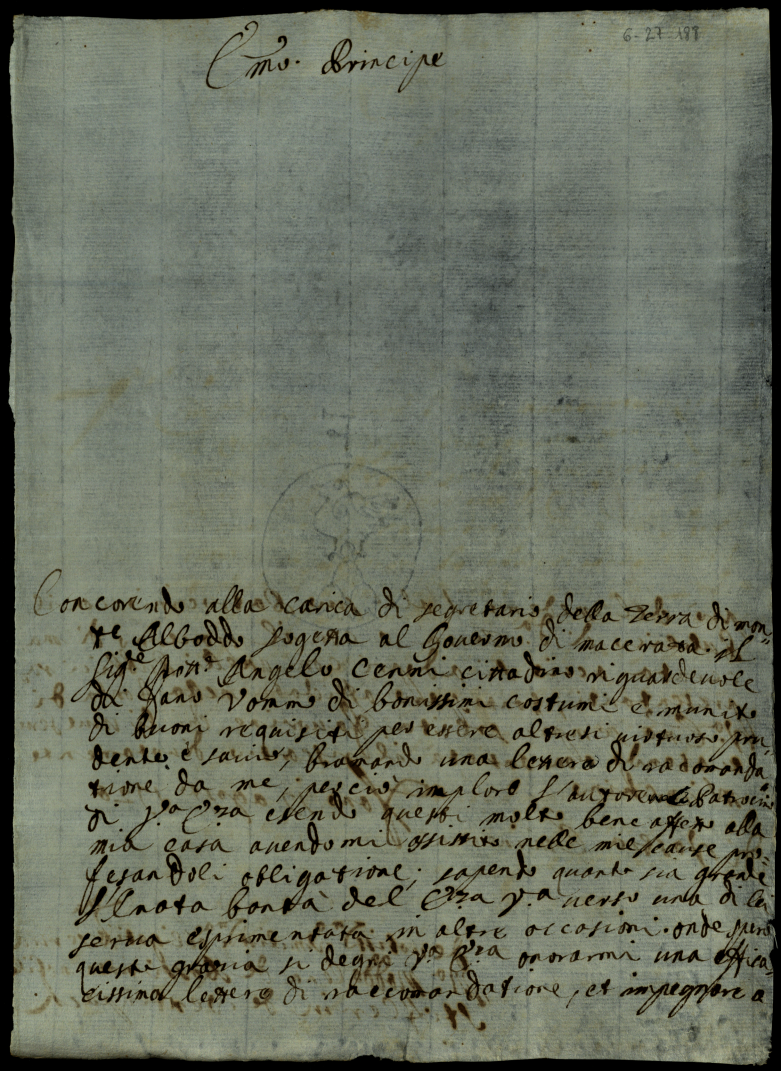 6-27-188
Emo. Principe
Concorendo alla carica di segretario della Terra di mon„
te Alboddo sogetta al Governo di macerata il
Sig.e Dott.e Angelo Cenni cittadino riguardevole
di Fano Vommo di bonissimi costumi e munito
di buoni requisiti per essere altresi virtuoso pru„
dente e savio, bramando una lettera di racomanda„
tione da me, perciò imploro l'autorevole Patrocinio
di V.a E.za esendo questi molto bene affetto alla
mia casa avendomi assistito nelle mie cause pro„
fesandoli obligatione; sapendo quanto sia grande
l'Inata bontà del E.za V.a verso una di lei
serva esprimentata in altre occasioni onde spero
questa grazia si degni V.a E.za onorarmi una effica„
cissima lettera di raccomandatione, et impegnare a